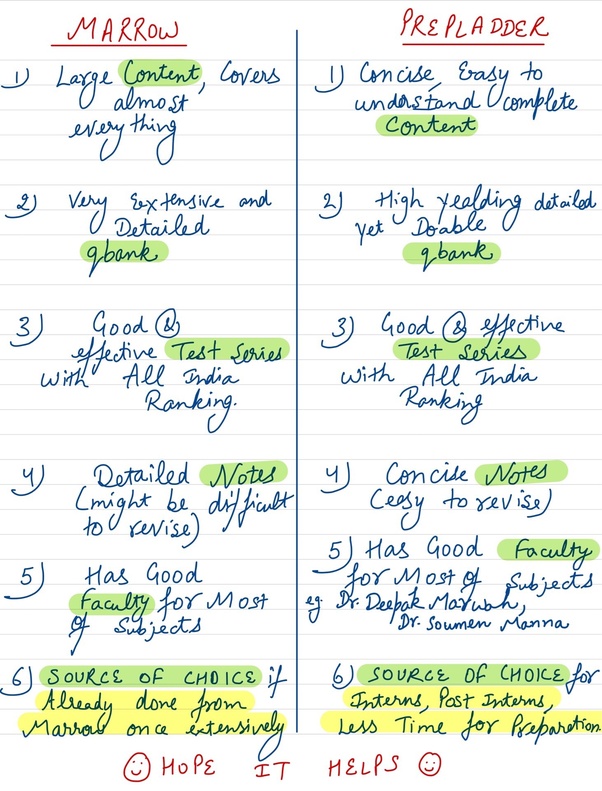 MARROW
1) Large Content, Covers
almost
everything
2) Very Extensive and
Detailed
qbank
3) Good &
effective Test Series
With All India
Ranking.
4) Detailed Notes
(might be difficult
to revise)
5) Has Good
Faculty for Most
of Subjects
6) SOURCE OF CHOICE if
Already done from
Marrow once extensively
PREPLADDER
1) Concise, Easy to
understand complete
Content
2) High yealding detailed
yet Doable
qbank
3) Good & effective
Test Series
With All India
Ranking
4) Concise Notes
(easy to revise)
5) Has Good Faculty
for Most of Subjects
eg. Dr. Deepak Marwah,
Dr. Soumen Manna
6) SOURCE OF CHOICE for
Interns, Post Interns,
Less Time for Preparation
HOPE IT HELPS